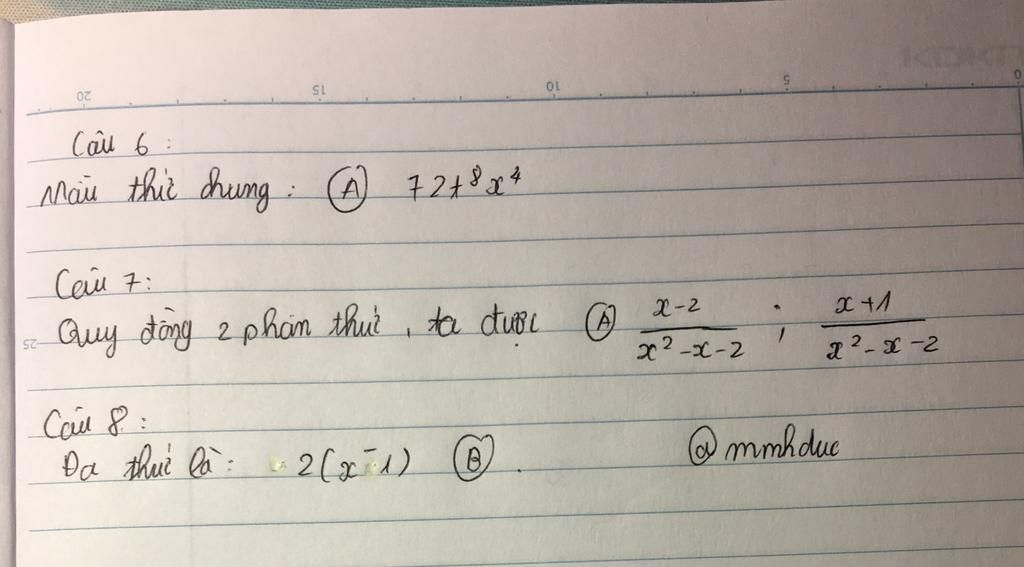 20 15 10 5 0
Câu 6 :
Mẫu thức chung : (A) 72t⁸x⁴
Câu 7 :
25 Quy đồng 2 phân thức, ta được (A) x-2 / x²-x-2 ; x+1 / x²-x-2
Câu 8 :
Đa thức là : 2(x-1) (B) . @mmhduc